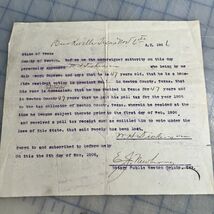 Buckville Texas Nov 6th A.D. 190 6
State of Texas
County of Newton. Before me the undersigned authority on this day
personally appeared who being by me
duly sworn deposes and says that he is 47 years old, that he is a bona-
fide resident voter in precinct in Newton
County, Texas, that he has resided in Texas for 47 years
and in Newton County 47 years that he paid his poll tax for 1905 to the
tax collector of Newton County, Texas, wherein he resided at the
time he became subject thereto prior to the first day of Feb, 1906,
and received a poll tax receipt which entitled him to vote under the
laws of this State, that said receipt has been lost.
W H Dickinson
Sworn to and subscribed to before me
On this the 6 day of Nov, 1906.
Notary Public Newton County, Tex.